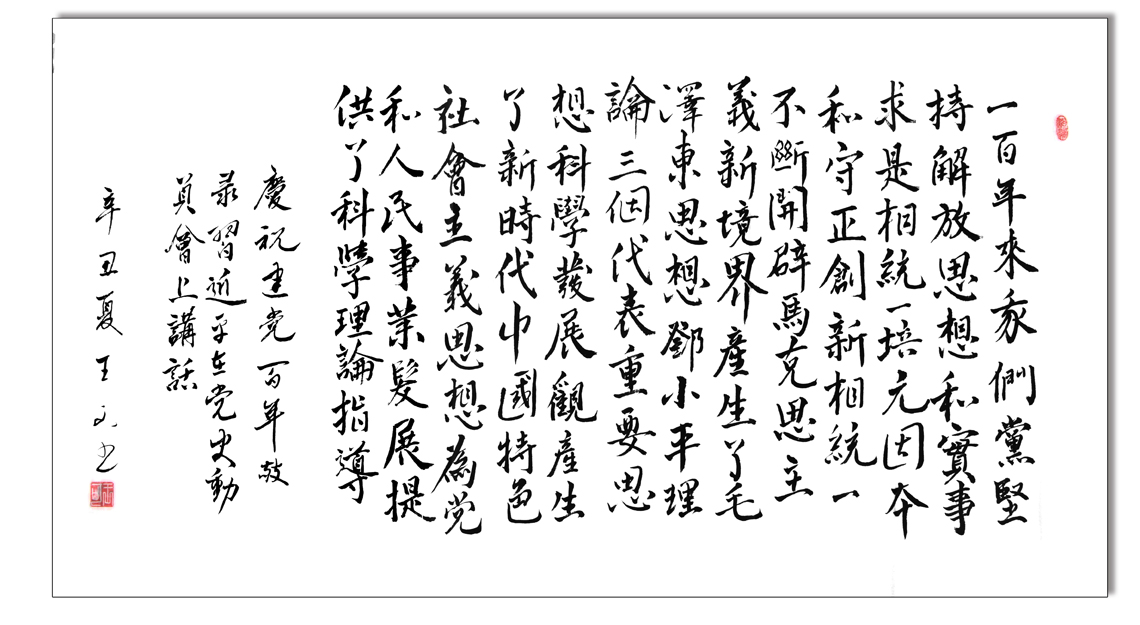 一百年來我們黨堅
持解放思想和實事
求是相統一培元固本
和守正創新相統一
不斷開辟馬克思主
義新境界產生了毛
澤東思想鄧小平理
論三個代表重要思
想科學發展觀產生
了新時代中國特色
社會主義思想為党
和人民事業髮展提
供了科學理論指導
慶祝建党百年敬
录習近平在党史動
員會上講話
辛丑夏王文书